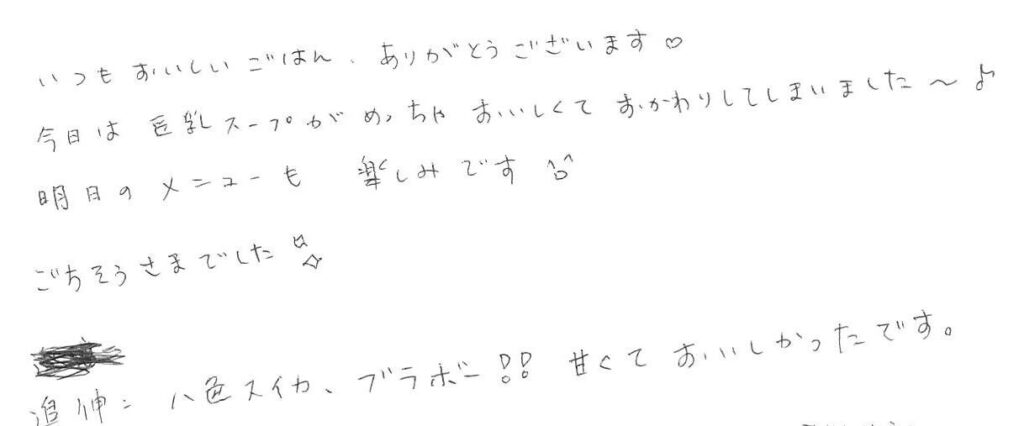 いつもおいしいごはん、ありがとうございます♡
今日は 豆乳スープがめっちゃ おいしくて おかわりしてしまいました〜♪
明日のメニューも 楽しみです
ごちそうさまでした
追伸: 八色スイカ、ブラボー!! 甘くて おいしかったです。